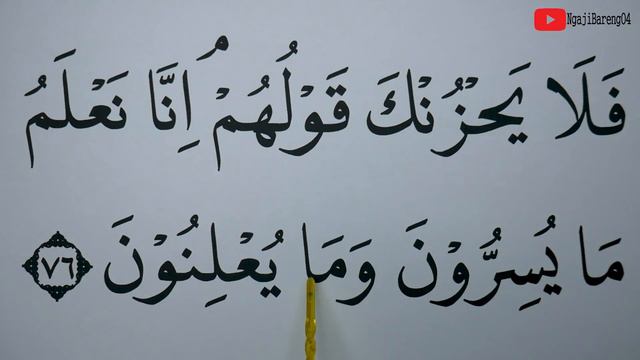 NgajiBareng04
فَلَا يَحْزُنْكَ قَوْلُهُمْ ۘ اِنَّا نَعْلَمُ
مَا يُسِرُّوْنَ وَمَا يُعْلِنُوْنَ ٧٦